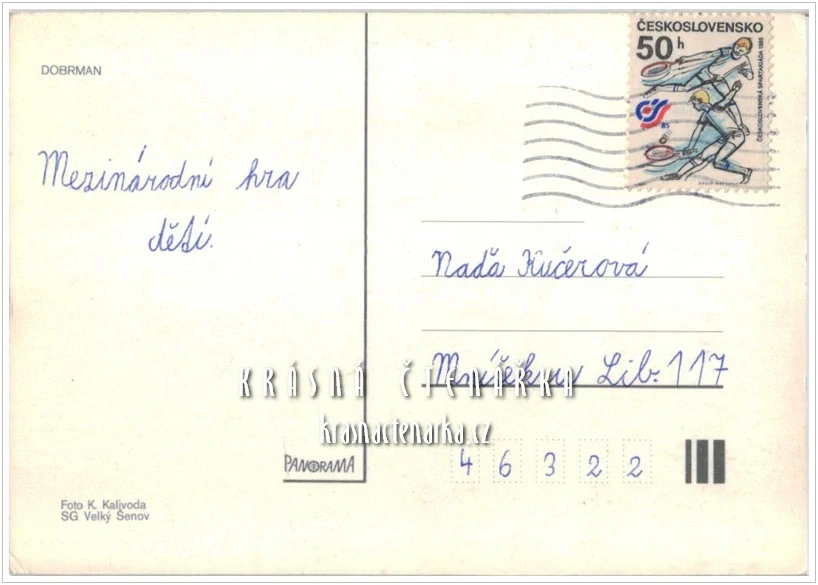 DOBRMAN
Mezinárodní hra
dětí.
ČESKOSLOVENSKO
50 h
ČESKOSLOVENSKÁ SPARTAKIÁDA 1985
ČS
85
Naďa Kučerová
Mníšek u Lib. 117
KRÁSNÁ ČTENÁRKA
krasnactenarka.cz
PANORAMA
46322
Foto K. Kalivoda
SG Velký Šenov